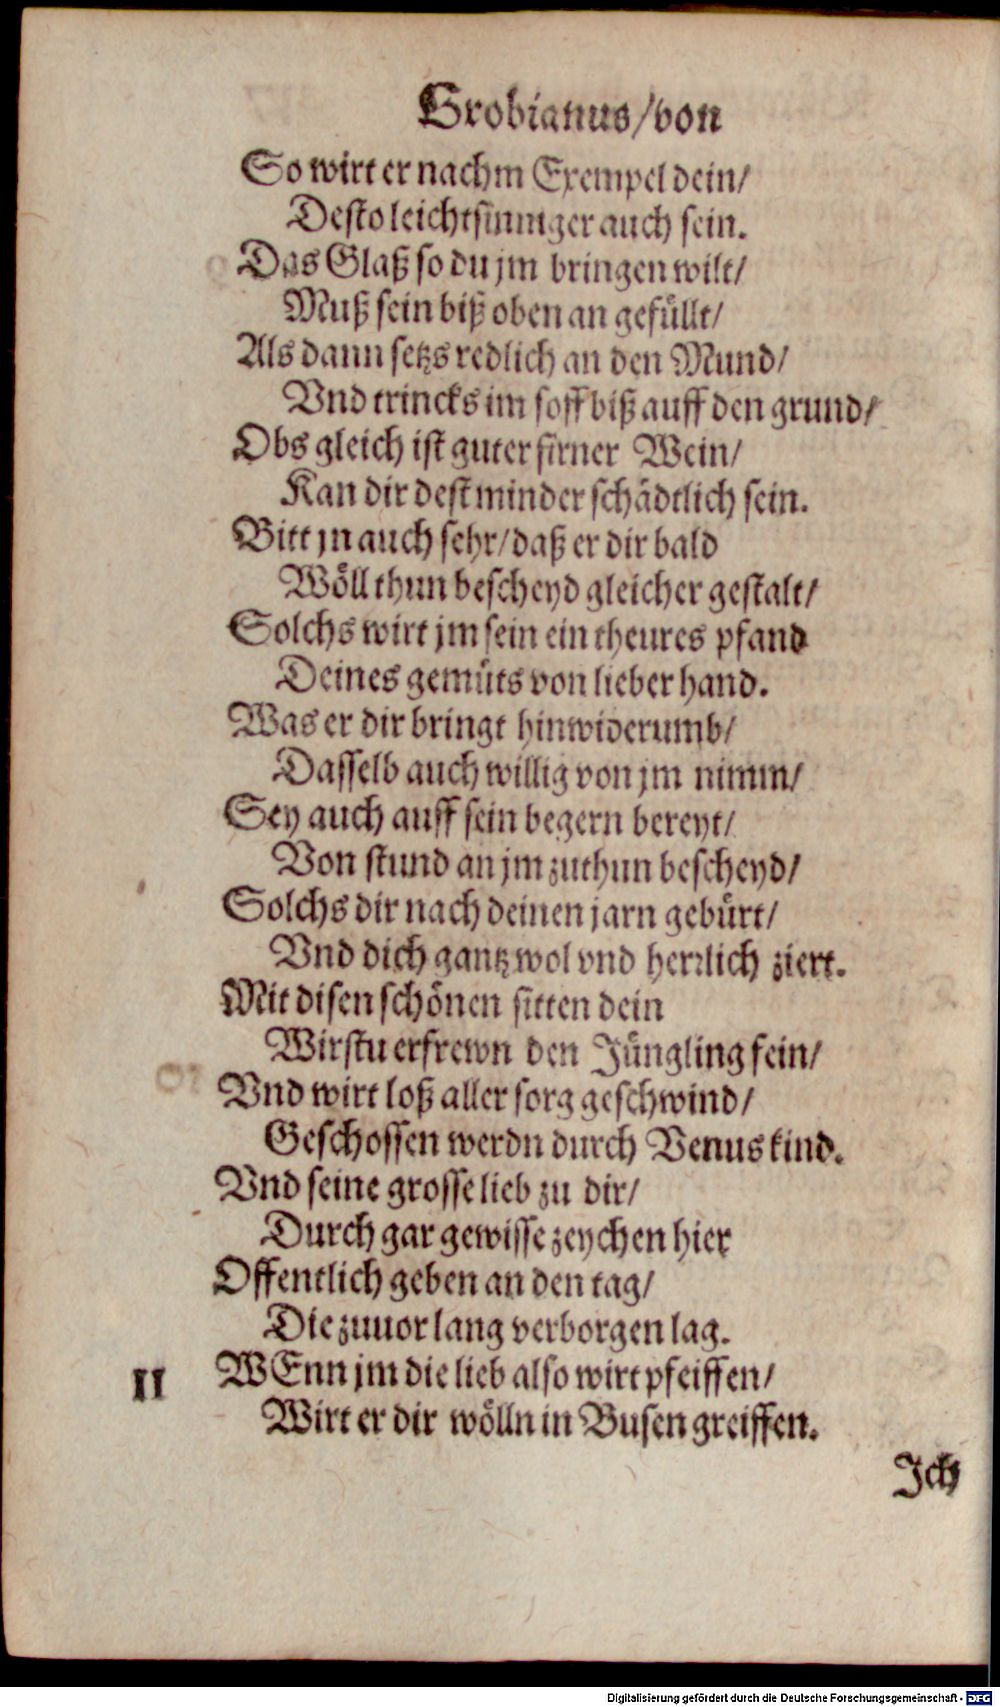 Grobianus/von
So wirt er nachm Exempel dein/
Desto leichtsinniger auch sein.
Das Glaß so du jm bringen wilt/
Muß sein biß oben an gefüllt/
Als dann setzs redlich an den Mund/
Vnd trincks im soff biß auff den grund/
Obs gleich ist guter firner Wein/
Kan dir dest minder schädtlich sein.
Bitt jn auch sehr/daß er dir bald
Wöll thun bescheyd gleicher gestalt/
Solchs wirt jm sein ein theures pfand
Deines gemüts von lieber hand.
Was er dir bringt hinwiderumb/
Dasselb auch willig von jm nimm/
Sey auch auff sein begern bereyt/
Von stund an jm zuthun bescheyd/
Solchs dir nach deinen jarn gebürt/
Vnd dich gantz wol vnd herrlich ziert.
Mit disen schönen sitten dein
Wirstu erfrewn den Jüngling fein/
Vnd wirt loß aller sorg geschwind/
Geschossen werdn durch Venus kind.
Vnd seine grosse lieb zu dir/
Durch gar gewisse zeychen hier
Offentlich geben an den tag/
Die zuuor lang verborgen lag.
11 WEnn jm die lieb also wirt pfeiffen/
Wirt er dir wölln in Busen greiffen.
Ich
Digitalisierung gefördert durch die Deutsche Forschungsgemeinschaft - DFG